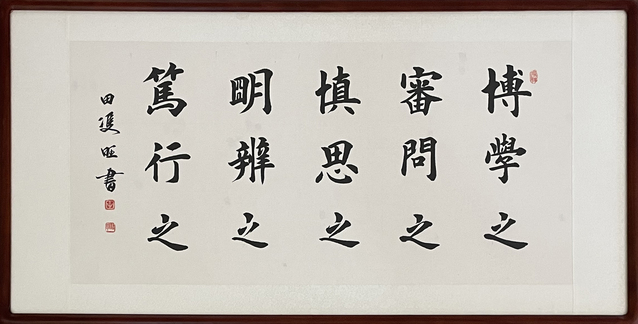 博學之
審問之
慎思之
明辨之
篤行之
田雙旺書